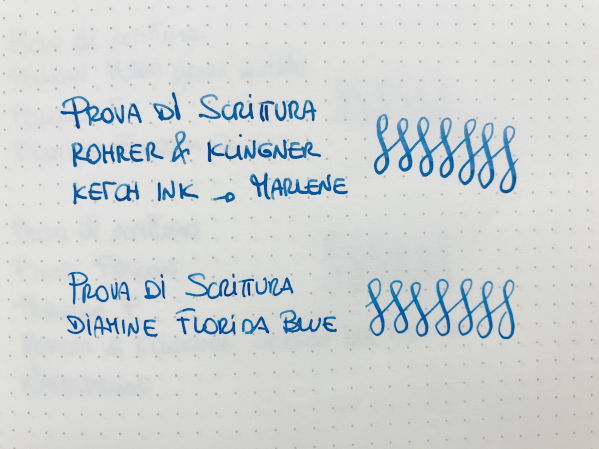 PROVA DI SCRITTURA
ROHRER & KLINGNER
KETCH INK → MARLENE
PROVA DI SCRITTURA
DIAMINE FLORIDA BLUE